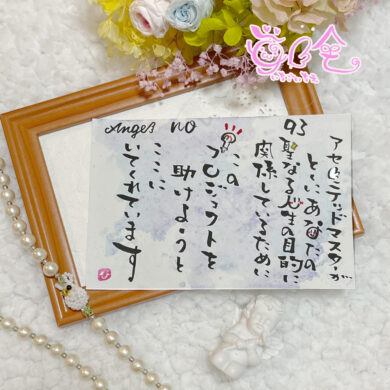 Angel NO
93
アセンデッドマスターが…
とくにあなたの
聖なる人生の目的に
関係しているために
この
プロジェクトを
助けようと
ここに
いてくれています